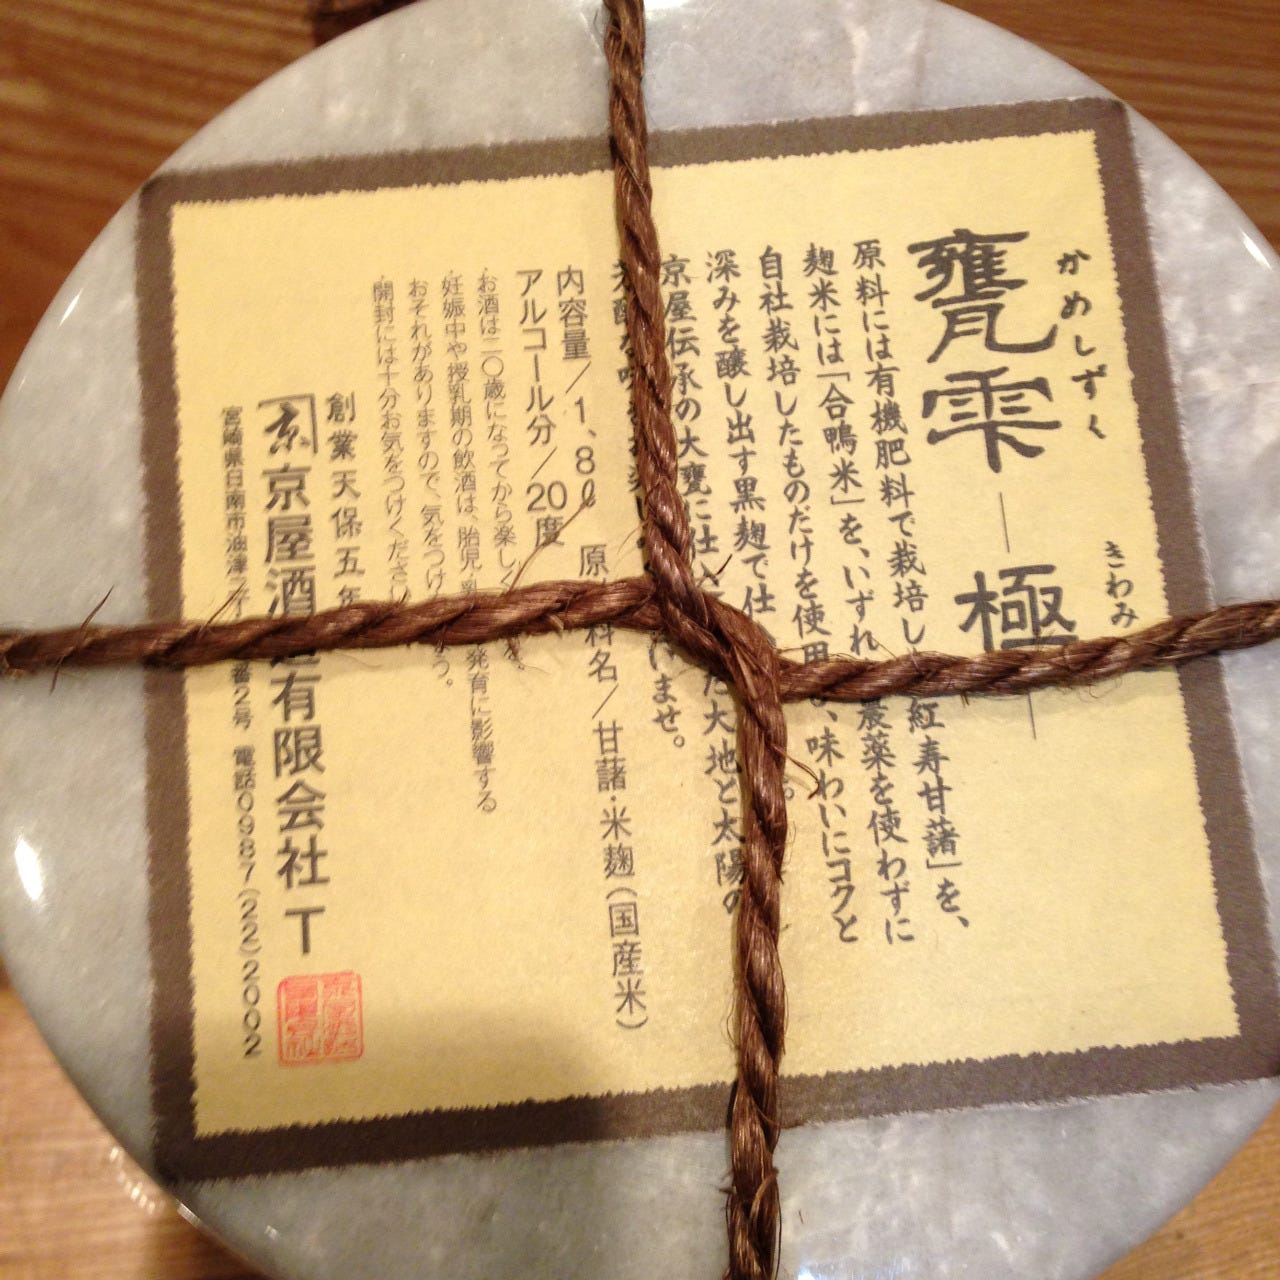 かめしずく きわみ
甕雫 ― 極 ―
原料には有機肥料で栽培し 紅寿甘藷」を、
麹米には「合鴨米」を、いずれ 農薬を使わずに
自社栽培したものだけを使用 、味わいにコクと
深みを醸し出す黒麹で仕 。
京屋伝承の大甕に仕 た大地と太陽の
ませ。
内容量/1、8ℓ 原 料名/甘藷・米麹(国産米)
アルコール分/20度
・お酒は二〇歳になってから楽し
・妊娠中や授乳期の飲酒は、胎児・乳 発育に影響する
おそれがありますので、気をつけ う。
・開封には十分お気をつけくださ
創業天保五年
京屋酒 有限会社 T
宮崎県日南市油津二丁 番2号 電話0987(22)2002